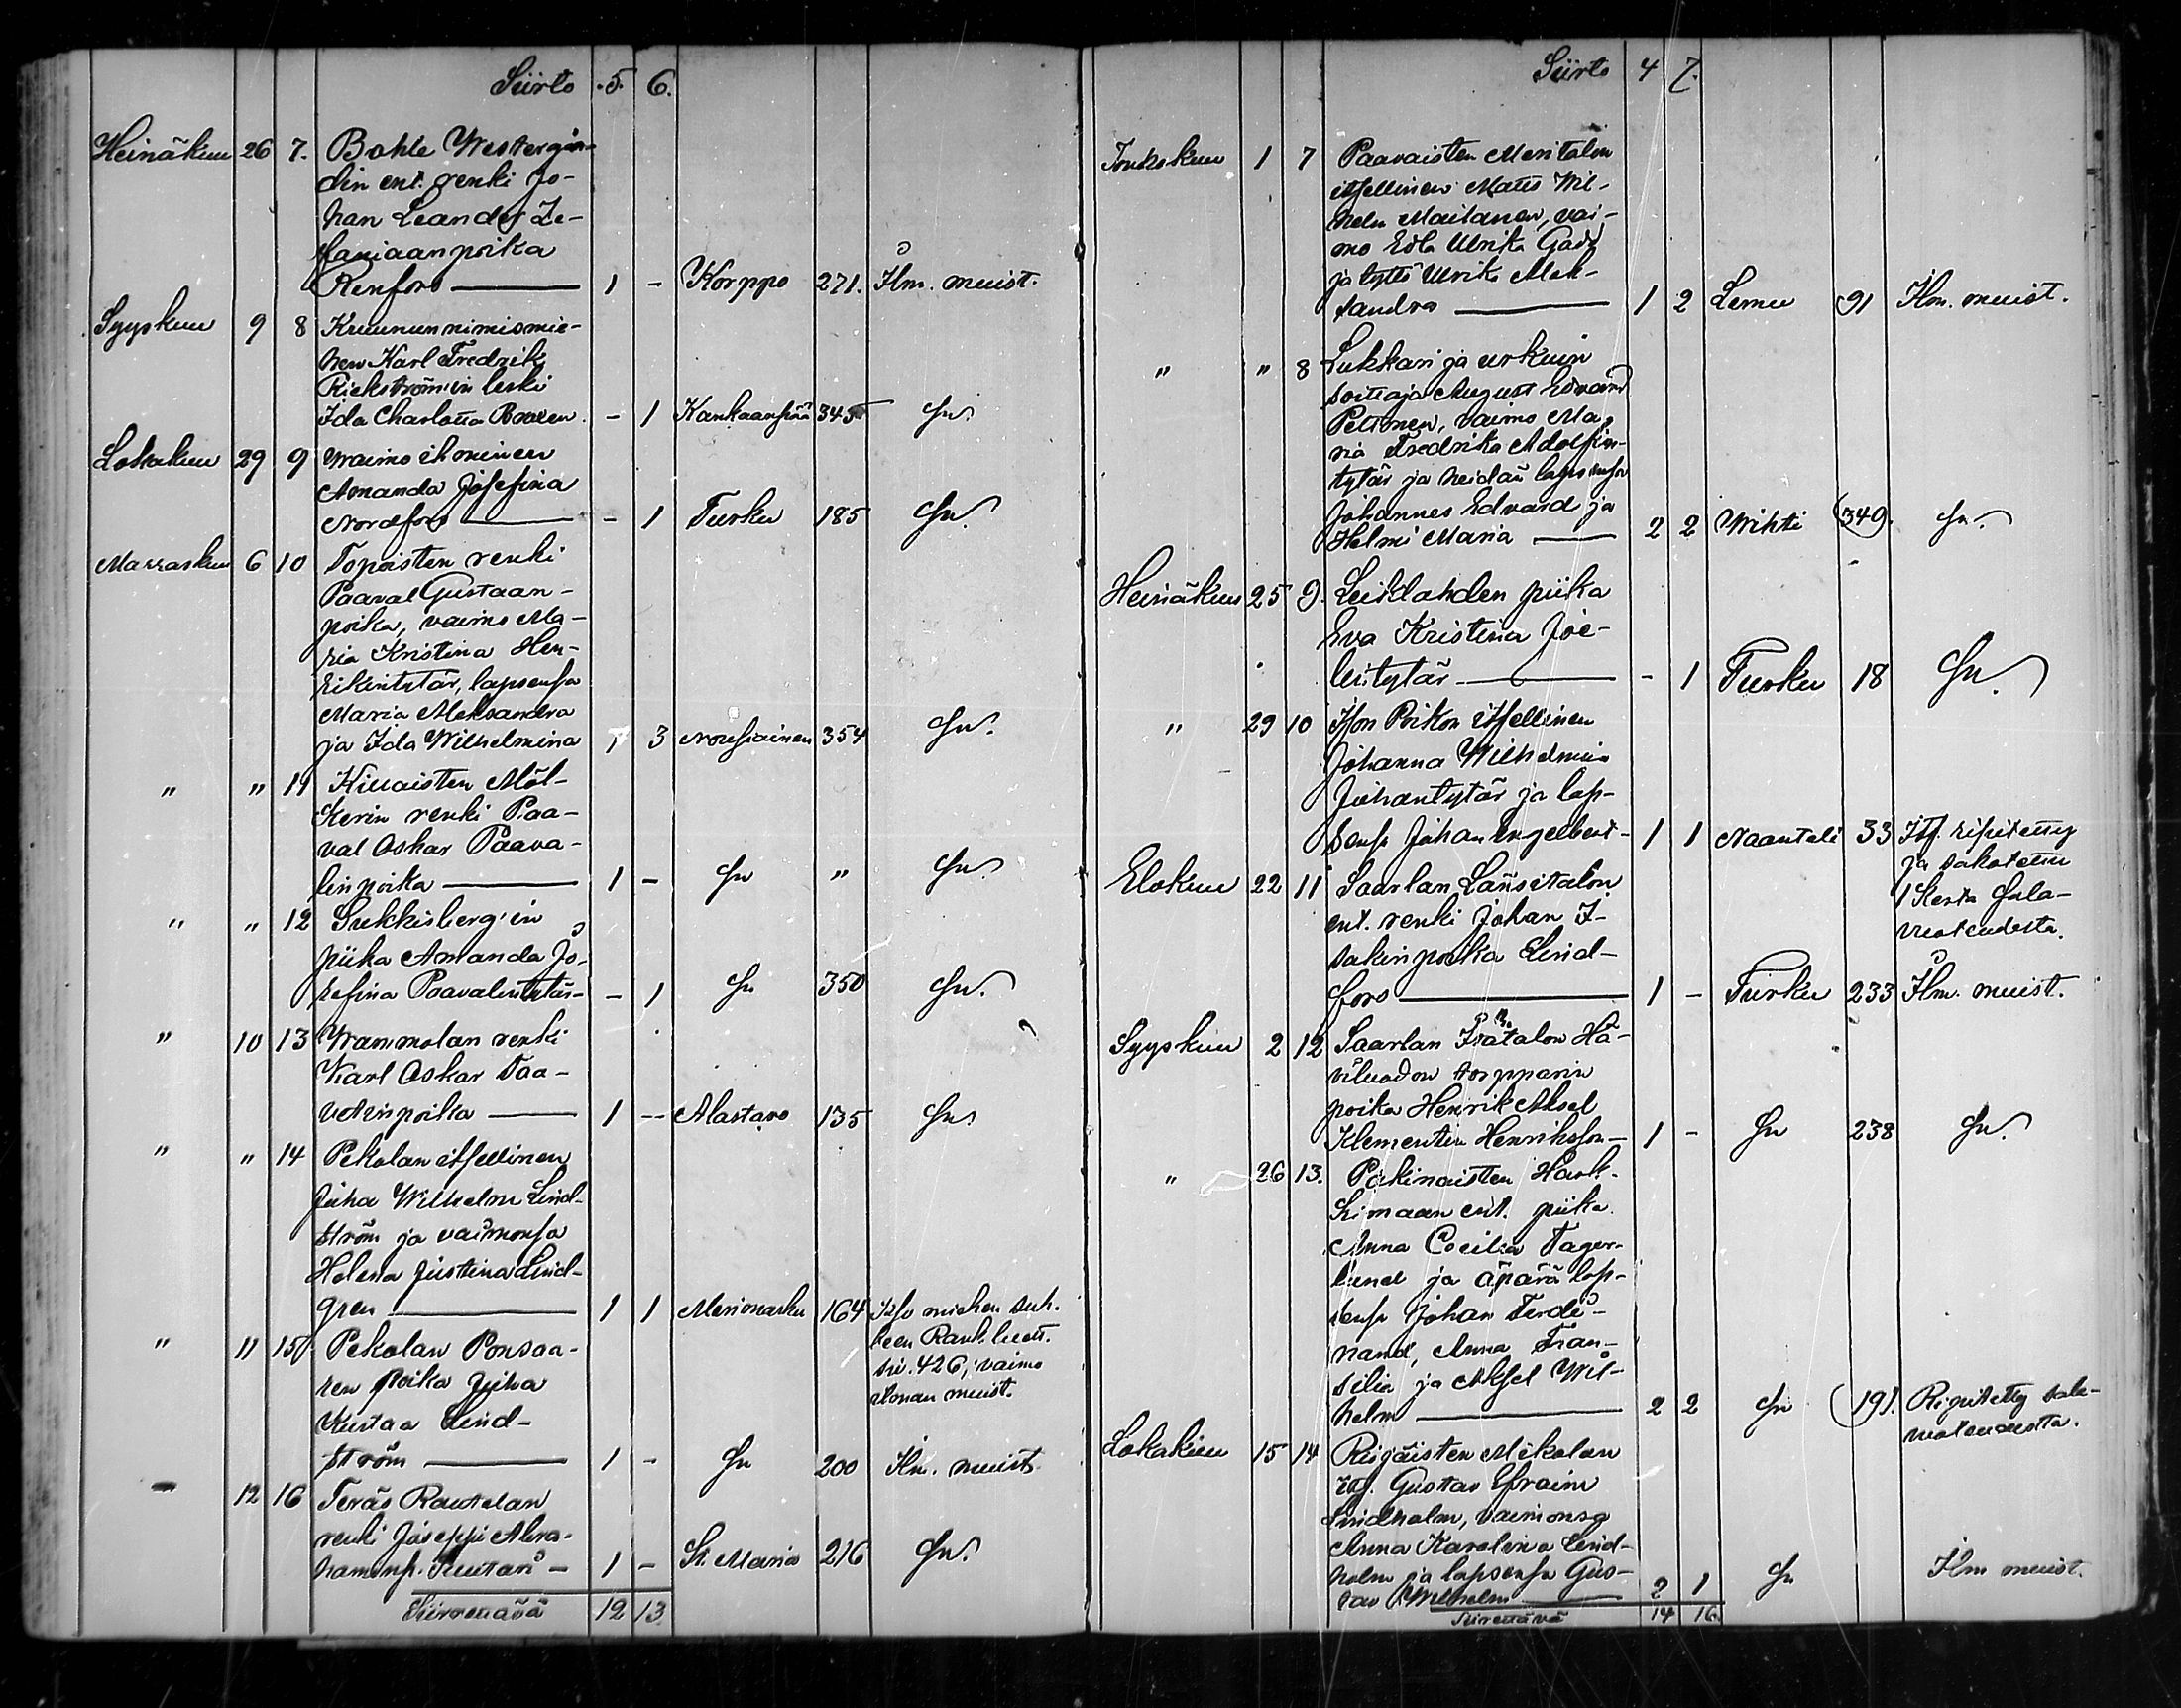 Siirto 5. 6.
Heinäkuu 26 7. Bohle Westergår-
din ent. renki Jo-
han Leander Ze-
faniaanpoika
Renfors — 1 - Korppo 271. Ilm. muist.
Syyskuu 9 8 Kruununnimismie-
hen Karl Fredrik
Rickström'in leski
Ida Charlotta - 1 Kankaanpää 345 Sn.
Lokakuu 29 9 Waimo ihminen
Amanda Josefina
Nordfors — - 1 Turku 185 Sn.
Marraskuu 6 10 Topoisten renki
Paaval Gustaan-
poika, vaimo Ma-
ria Kristina Hen-
rikintytär, lapsensa
Maria Aleksandra
ja Ida Wilhelmina 1 3 Nousiainen 354 Sn.
" " 11 Killaisten Möl-
Kerin renki Paa-
val Oskar Paava-
linpoika — 1 - Sn " Sn.
" " 12 Sukkisberg'in
piika Amanda Jo-
sefina Paavalintytär - 1 Sn 350 Sn.
" 10 13 Wammolan renki
Karl Oskar Taa-
vetinpoika — 1 - Alastaro 135 Sn.
" " 14 Pekolan itsellinen
Juha Wilhelm Lind-
ström ja vaimonsa
Helena Justina Lind-
gren — 1 1 Merimasku 164 Itse miehen suh.
teen Rank. luett.
siv. 426; vaimo
ilman muist.
" 11 15 Pekolan Ponsaa-
ren poika Juha
Kustaa Lind-
ström — 1 - Sn 200 Ilm. muist.
" 12 16 Teräs Rautelan
renki Joseppi Abra-
haminp. — 1 - St. Maria 216 Sn.
Siirrettävä 12 13
Siirto 4 7.
Toukokuu 1 7 Paavaisten Meritalon
itsellinen Matts Wil-
helm Mailanen, vai-
mo Edla Ulrika Gadd
ja tyttö Ulrika Alek-
sandra — 1 2 Lemu 91 Ilm. muist.
" " 8 Lukkari ja urkuin
soittaja August Edvard
Peltonen, vaimo Ma-
ria Fredrika Adolfin-
tytär ja heidän lapsensa
Johannes Edvard ja
Helmi Maria — 2 2 Wihti 349. Sn.
Heinäkuu 25 9. Leikdahden piika
Eva Kristina Joe-
lintytär — - 1 Turku 18 Sn.
" 29 10 Ison Poikon itsellinen
Johanna Wilhelmina
Juhantytär ja lap-
sensa Johan Engelbert - 1 1 Naantali 33 Its. ripitetty
ja sakotettu
1 Kerta sala-
vuoteudesta.
Elokuu 22 11 Saarlan Länsitalon
ent. renki Johan I-
sakinpoika Lind-
fors — 1 - Turku 233 Ilm. muist.
Syyskuu 2 12 Saarlan Itätalon Hä-
viluodon torpparin
poika Henrik Aksel
Klementin Henriksson — 1 - Sn 238 Sn.
" 26 13. Pakinaisten Hark-
kimaan ent. piika
Anna Cecilia Fager-
lund ja äpärä lap-
sensa Johan Ferdi-
nand, Anna Fran-
silia ja Aksel Wil-
helm — 2 2 Sn 191. Ripitetty sala-
vuoteudesta.
Lokakuu 15 14 Ruojäisten Mikolan
its. Gustav Efraim
Lindholm, vaimonsa
Anna Karolina Lind-
holm ja lapsensa Gus-
tav Wilhelm — 2 1 Sn Ilm muist.
Siirrettävä 14 16